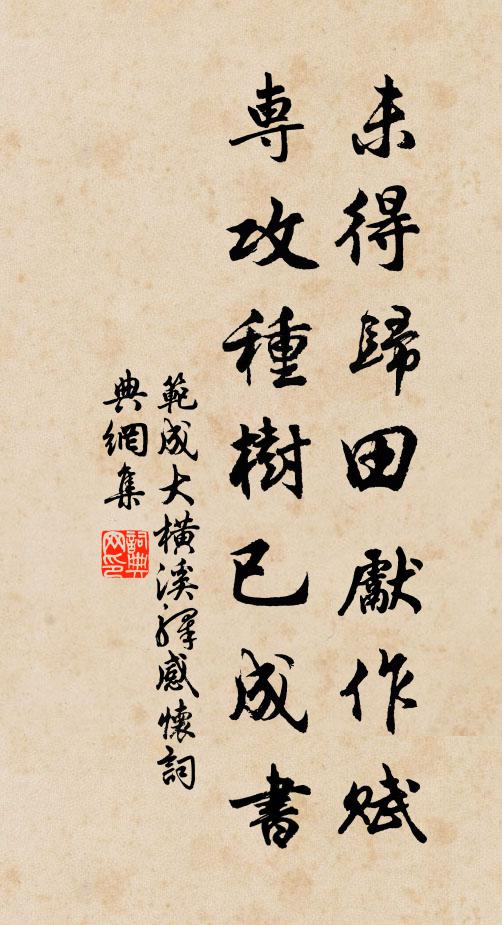 未得歸田獻作賦
専攻種樹已成書
範成大橫溪驛感懷詞
典網集
詞典
网印